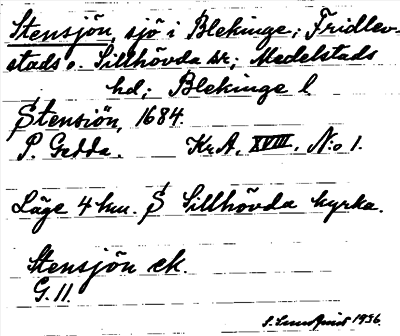 Stensjön, sjö i Blekinge; Fridlev-
stads o. Sillhövda sr; Medelstads
hd; Blekinge l.
Stensiön, 1684.
P. Gedda. Kr.A. XVIII. N:o 1.
Läge 4 hm. S Sillhövda kyrka.
Stensjön ek.
G. 11.
S. Lundqvist 1936.